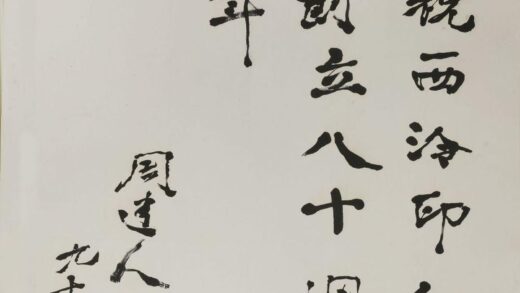 祝西泠印
創立八十
年
周建人
九十